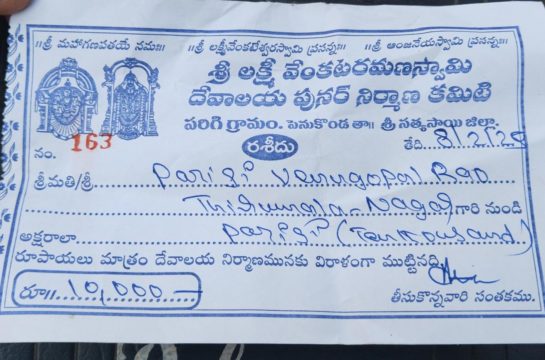 ॥శ్రీ మహాగణపతయే నమః॥ ॥శ్రీ లక్ష్మీవేంకటేశ్వరస్వామి ప్రసన్నః॥ ॥శ్రీ ఆంజనేయస్వామి ప్రసన్నః॥
శ్రీ లక్ష్మీ వేంకటరమణస్వామి
దేవాలయ పునర్ నిర్మాణ కమిటి
పరిగి గ్రామం. పెనుకొండ తా॥ శ్రీ సత్యసాయి జిల్లా.
నం. 163 రశీదు తేది. 8/2/26
శ్రీమతి/శ్రీ Parigi Venugopal Rao
Thirumala-Nagar గారి నుండి
అక్షరాలా Parigi (Ten Thousand)
రూపాయలు మాత్రం దేవాలయ నిర్మాణమునకు విరాళంగా ముట్టినది
రూ॥ 10,000 తీసుకొన్నవారి సంతకము.